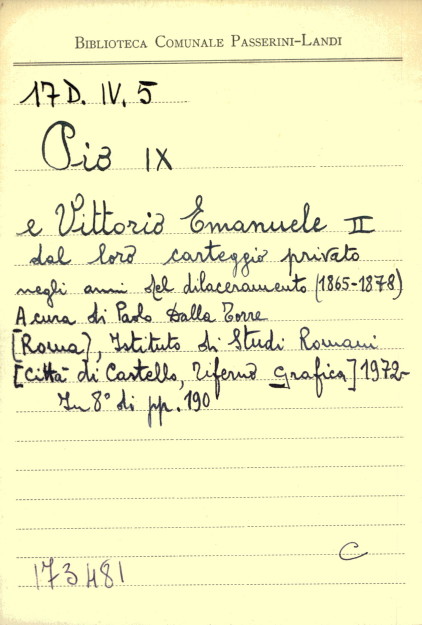 BIBLIOTECA COMUNALE PASSERINI-LANDI
17 D. IV. 5
Pio IX
e Vittorio Emanuele II
dal loro carteggio privato
negli anni del dilaceramento (1865-1878)
A cura di Paolo Dalla Torre
[Roma], Istituto di Studi Romani
[Città di Castello, Tiferno Grafica] 1972-
In 8° di pp. 190
C
173481